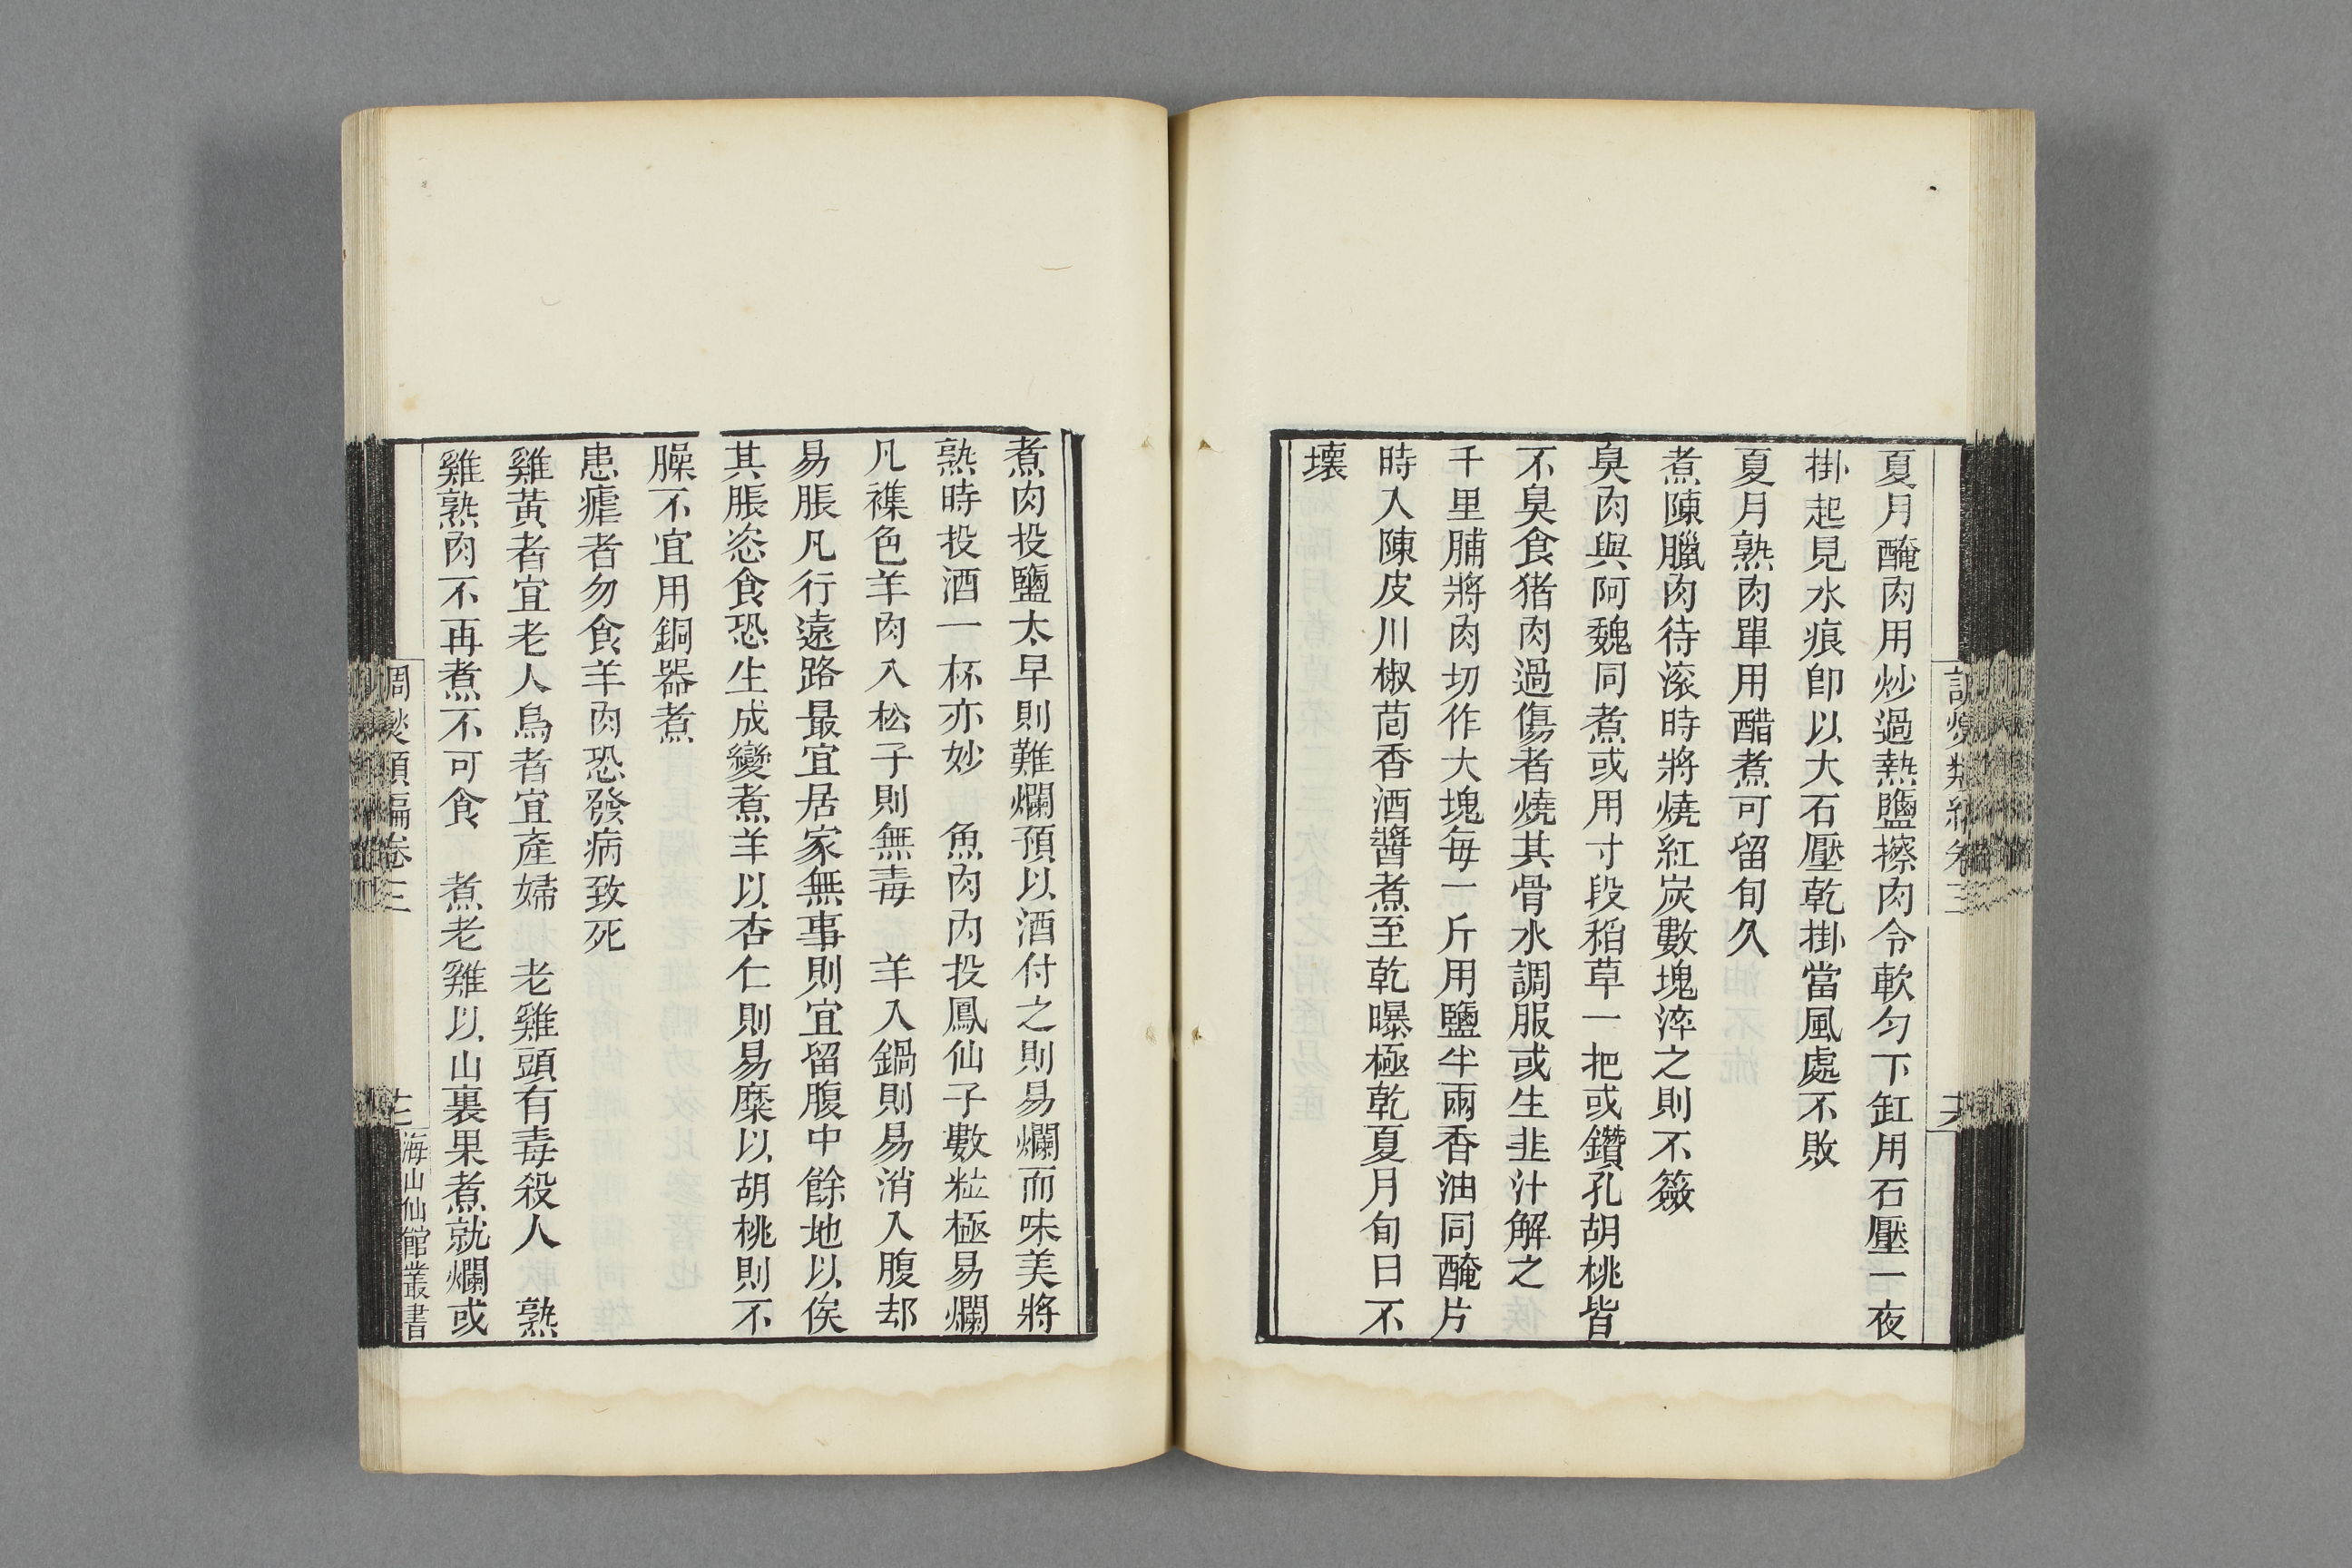 夏月醃肉用炒過熱鹽擦肉令軟勻下缸用石壓一夜
掛起見水痕卽以大石壓乾掛當風處不敗
夏月熟肉單用醋煮可留旬久
煮陳臘肉待滚時將燒紅炭數塊淬之則不籨
臭肉與阿魏同煮或用寸段稻草一把或鑽孔胡桃皆
不臭食猪肉過傷者燒其骨水調服或生韭汁解之
千里脯將肉切作大塊每一斤用鹽半兩香油同醃片
時入陳皮川椒茴香酒醬煮至乾曝極乾夏月旬日不
壞
煮肉投鹽太早則難爛預以酒付之則易爛而味美將
熟時投酒一杯亦妙　魚肉內投鳳仙子數粒極易爛
凡襍色羊肉入松子則無毒　羊入鍋則易消入腹却
易脹凡行遠路最宜居家無事則宜留腹中餘地以俟
其脹恣食恐生成變煮羊以杏仁則易糜以胡桃則不
臊不宜用銅器煮
患瘧者勿食羊肉恐發病致死
雞黃者宜老人烏者宜產婦　老雞頭有毒殺人　熟
雞熟肉不再煮不可食　煮老雞以山裏果煮就爛或
調燮類編卷三
海山仙館叢書